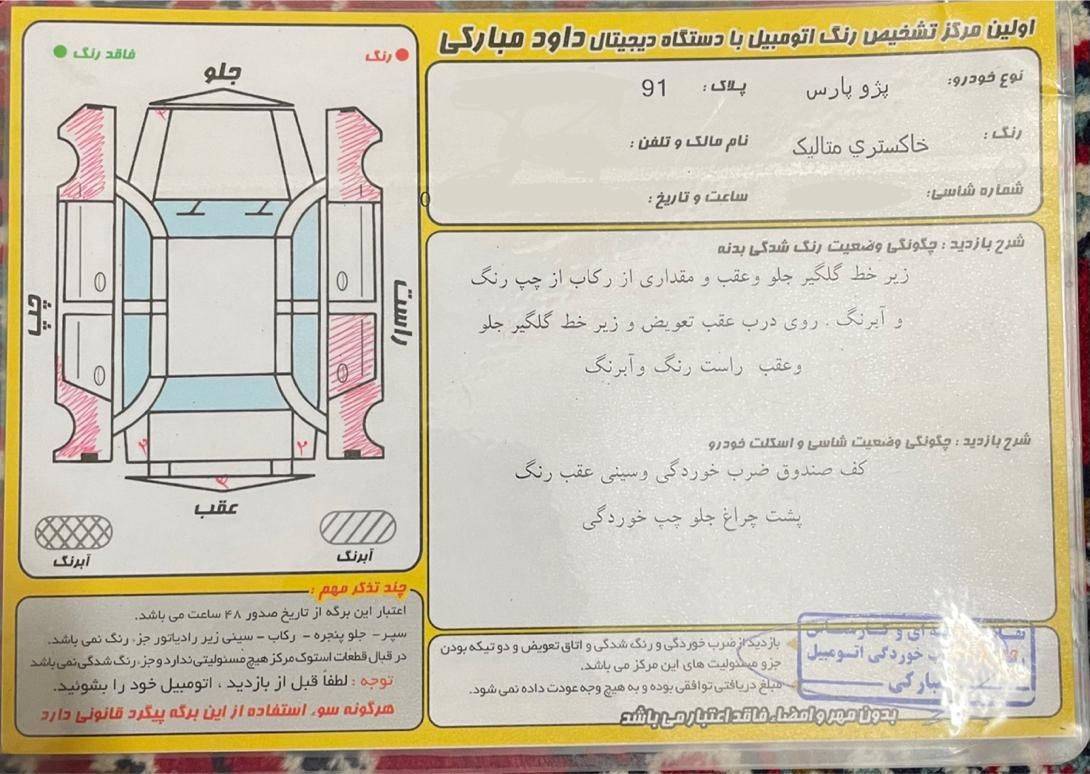 اولین مرکز تشخیص رنگ اتومبیل با دستگاه دیجیتال داود مبارکی
نوع خودرو: پژو پارس پلاک: 91
رنگ: خاکستري متالیک نام مالک و تلفن:
شماره شاسی: ساعت و تاریخ:
شرح بازدید: چگونگی وضعیت رنگ شدگی بدنه
زیر خط گلگیر جلو وعقب و مقداری از رکاب از چپ رنگ
و آبرنگ . روی درب عقب تعویض و زیر خط گلگیر جلو
وعقب راست رنگ وآبرنگ
شرح بازدید: چگونگی وضعیت شاسی و اسکلت خودرو
کف صندوق ضرب خوردگی وسینی عقب رنگ
پشت چراغ جلو چپ خوردگی
رنگ فاقد رنگ
جلو
۲
راست
چپ
۲
۴
۳
عقب
آبرنگ آبرنگ
چند تذکر مهم:
اعتبار این برگه از تاریخ صدور ۴۸ ساعت می باشد.
سپر - جلو پنجره - رکاب - سینی زیر رادیاتور جزء رنگ نمی باشد.
در قبال قطعات استوک مرکز هیچ مسئولیتی ندارد و جزء رنگ شدگی نمی باشد
توجه: لطفا قبل از بازدید ، اتومبیل خود را بشوئید.
هرگونه سوء استفاده از این برگه پیگرد قانونی دارد
بازدید از ضرب خوردگی و رنگ شدگی و اتاق تعویض و دو تیکه بودن
جزو مسئولیت های این مرکز می باشد.
مبلغ دریافتی توافقی بوده و به هیچ وجه عودت داده نمی شود.
بدون مهر و امضاء فاقد اعتبار می باشد
خوردگی اتومبیل